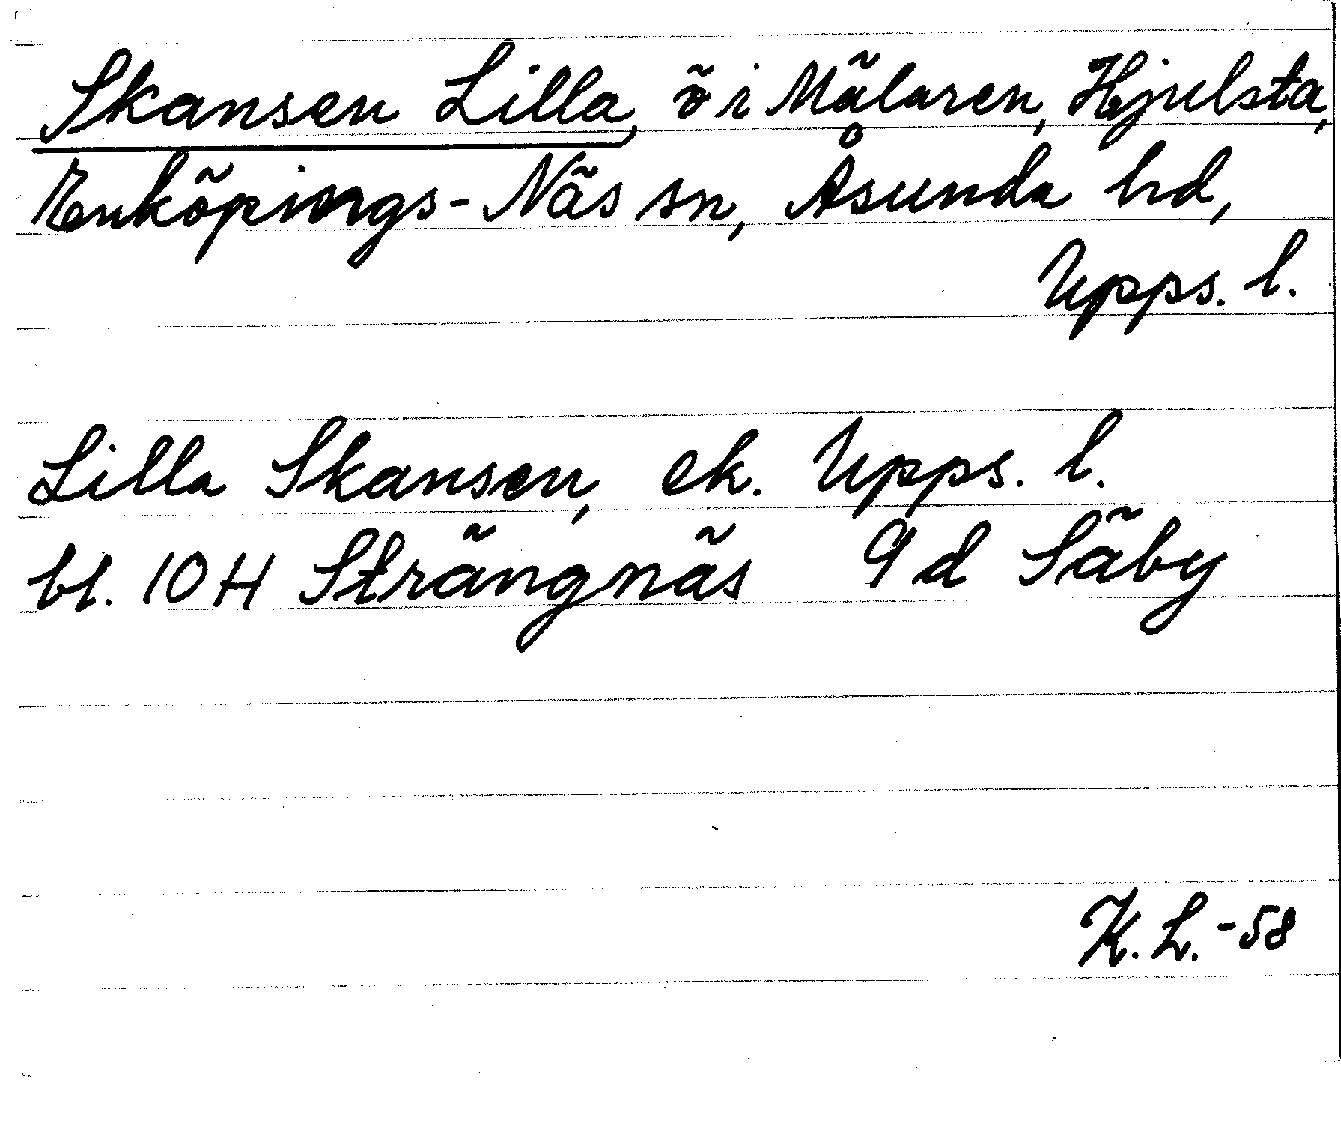 Skansen Lilla, ö i Mälaren, Hjulsta,
Enköpings-Näs sn, Åsunda hd,
Upps. l.
Lilla Skansen, ek. Upps. l.
bl. 10 H Strängnäs 9 d Säby
K. L. -58